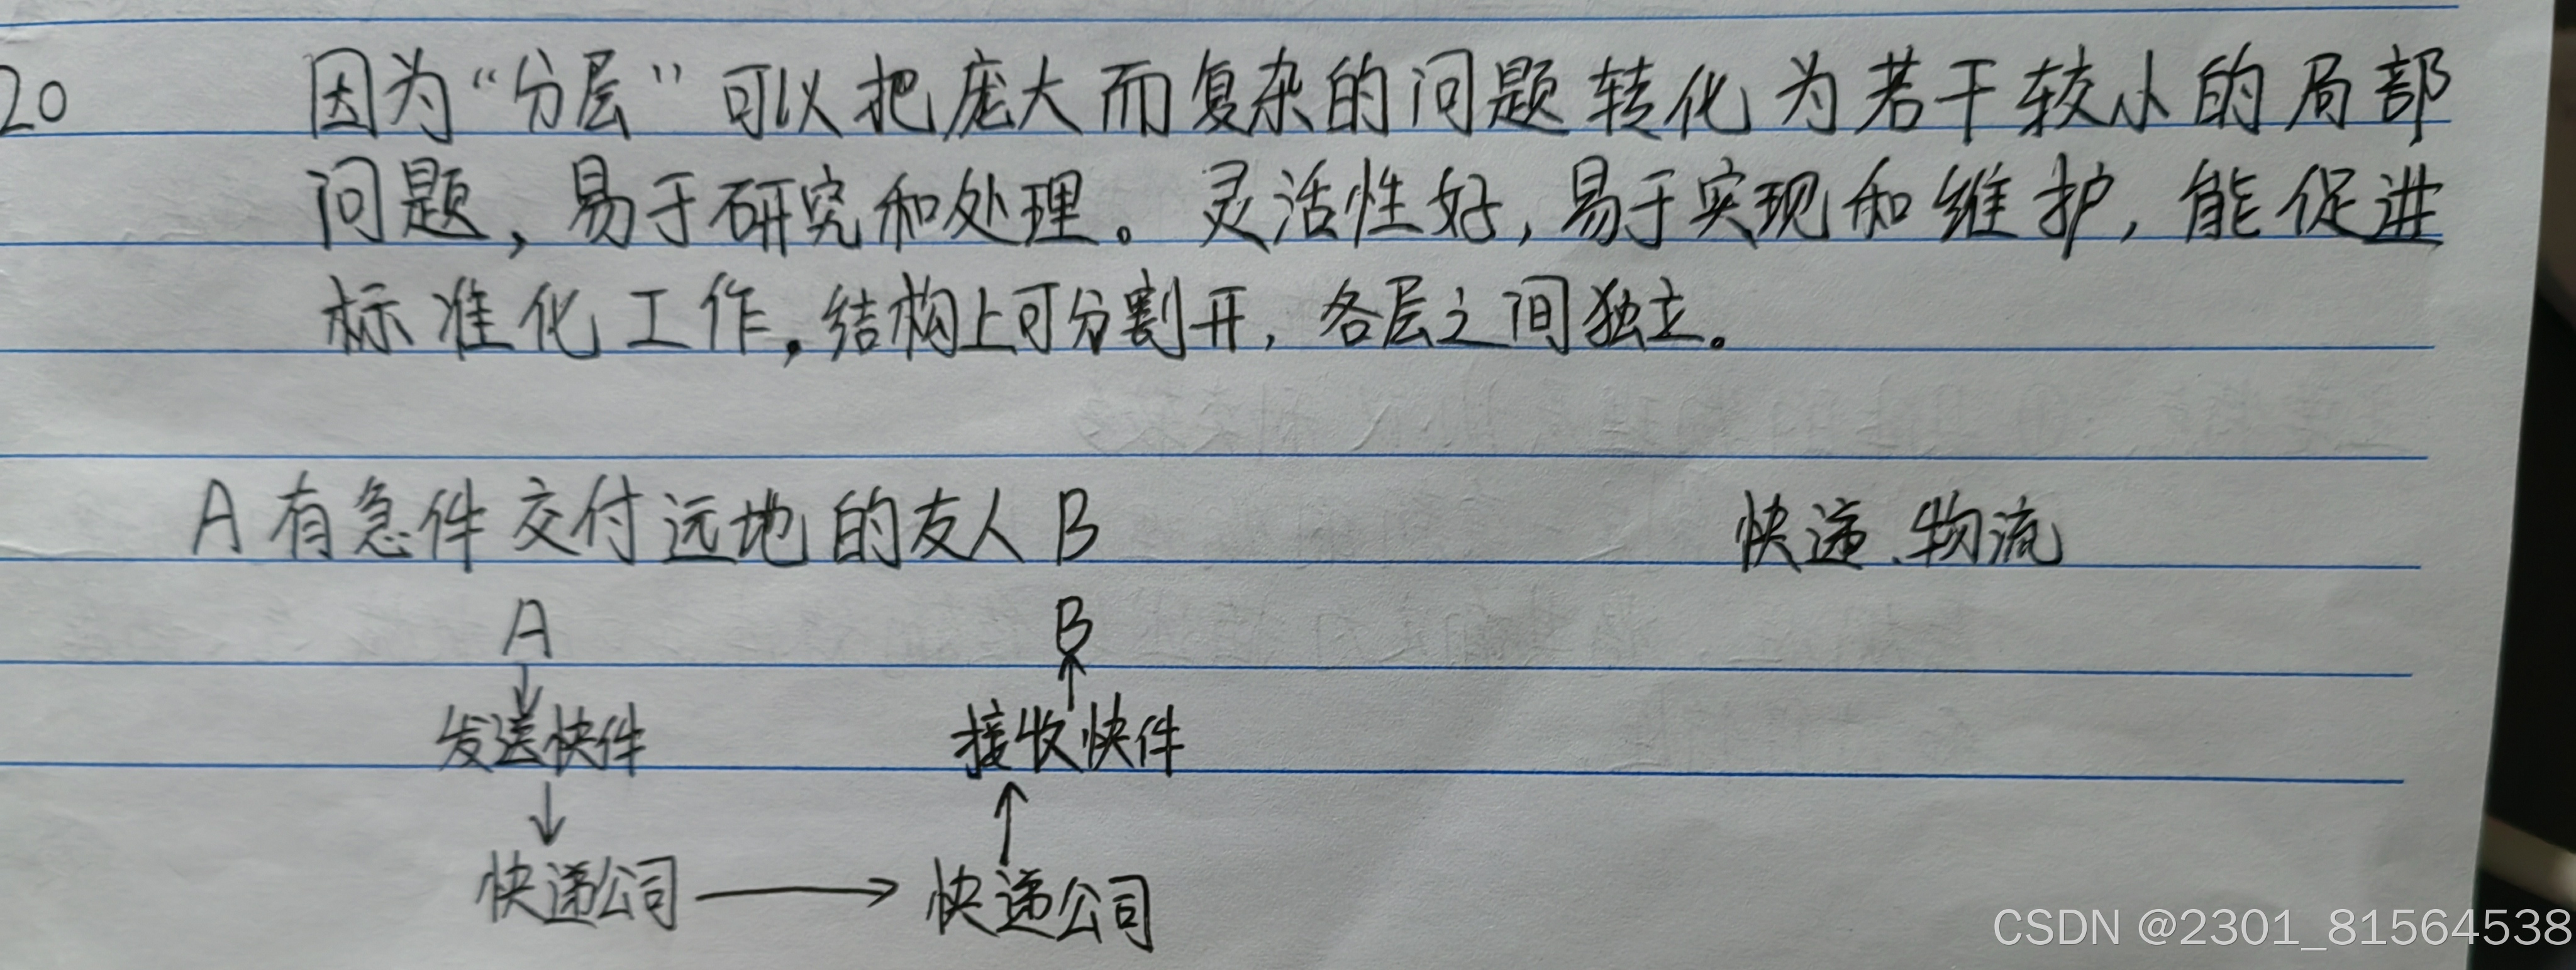 20 因为“分层”可以把庞大而复杂的问题转化为若干较小的局部
问题，易于研究和处理。灵活性好，易于实现和维护，能促进
标准化工作，结构上可分割开，各层之间独立。
A有急件交付远地的友人B 快递、物流
A B
发送快件 接收快件
快递公司 快递公司
CSDN @2301_81564538